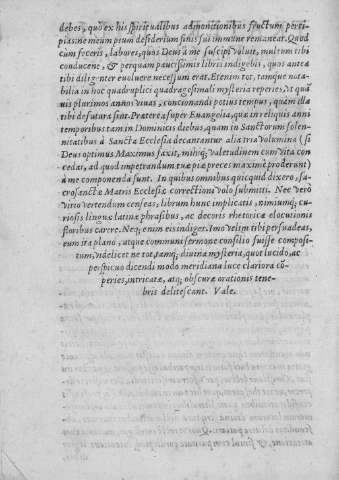 debes, quo ex his spiritualibus admonitionibus fructum perci-
pias: ne meum pium desiderium sinis sui immune remaneat. Quod
cùm feceris, labores, quos Deus à me suscipi voluit, multum tibi
conducent, & perquam paucissimis libris indigebis, quos antea
tibi diligenter euoluere necessum erat. Etenim tot, tamque nota-
bilia in hoc quadruplici quadragesimali mysteria reperies, vt quã
uis plurimos annos viuas, concionandi potius tempus, quam illa
tibi defutura sint. Præterea super Euangelia, quæ in reliquis anni
temporibus tam in Dominicis diebus, quam in Sanctorum solen-
nitatibus à Sancta Ecclesia decantantur alia tria volumina (si
Deus optimus Maximus faxit, mihiq; valetudinem cum vita con
cedat, ad quod impetrandum tuæ piæ preces maximè proderunt)
à me componenda sunt. In quibus omnibus quicquid dixero, sa-
crosanctæ Matris Ecclesiæ correctioni volo submitti. Nec verò
vitio vertendum censeas, librum hunc implicatis, nimiumq; cu-
riosis linguæ latinæ phrasibus, ac decoris rhetoricæ elocutionis
floribus carere. Neq; enim eis indiget. Imo velim tibi persuadeas,
eum ira plano, atque communi sermone consilio fuisse composi-
tum, videlicet ne tot, tamq; diuina mysteria, quot lucido, ac
perspicuo dicendi modo meridiana luce clariora cõ-
peries, intricatæ, atq; obscuræ orationis tene-
bris delitescant. Vale.